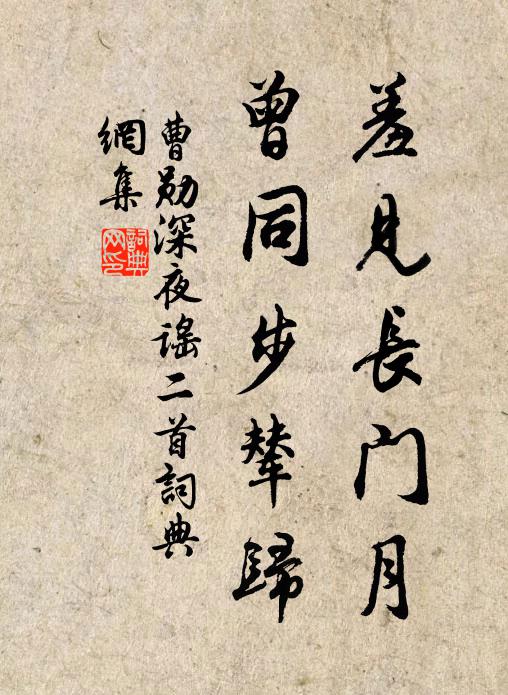 羞見長門月
曾同步輦歸
曹勛深夜謠二首詞典
網集
詞典
网印